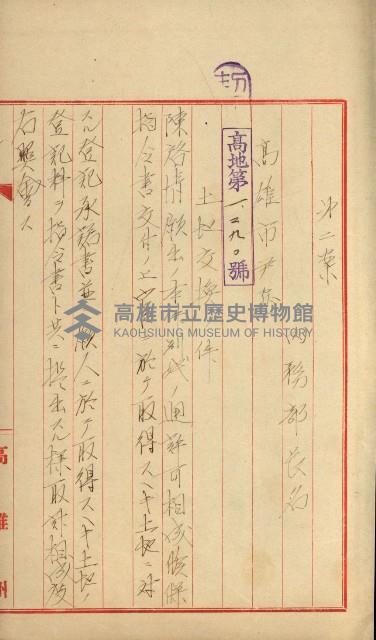 第二案
内務部長名
高雄市尹宛
高地第一二九〇號
土地交換ノ件
陳啓清願出ノ本件別紙ノ通許可相成候條
指令書交付ノ上 市ニ於テ取得スヘキ土地ニ対
スル登記承諾書並願人ニ於テ取得スヘキ土地ノ
登記料ヲ指令書ト共ニ提出スル様取計相成度
右照會ス
高雄州
高雄市立歷史博物館
KAOHSIUNG MUSEUM OF HISTORY